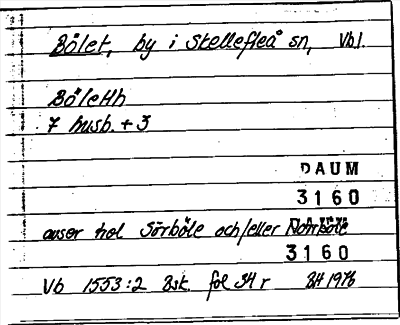 Bölet, by i Skellefteå sn, Vbl.
BöleHh
7 husb. + 3
DAUM
3160
avser hel Sörböle och/eller Norrböle
3160
Vb 1553:2 Bsk. fol 34 r BH 1976